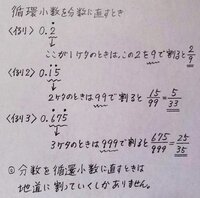 循環小数を分数に直すとき
〈例1〉 0.2̇
ここが1ケタのときは、この2を9で割ると 2/9
〈例2〉 0.1̇5̇
2ケタのときは99で割ると 15/99 = 5/33
〈例3〉 0.6̇75̇
3ケタのときは999で割ると 675/999 = 25/35
◎分数を循環小数に直すときは
地道に割っていくしかありません。